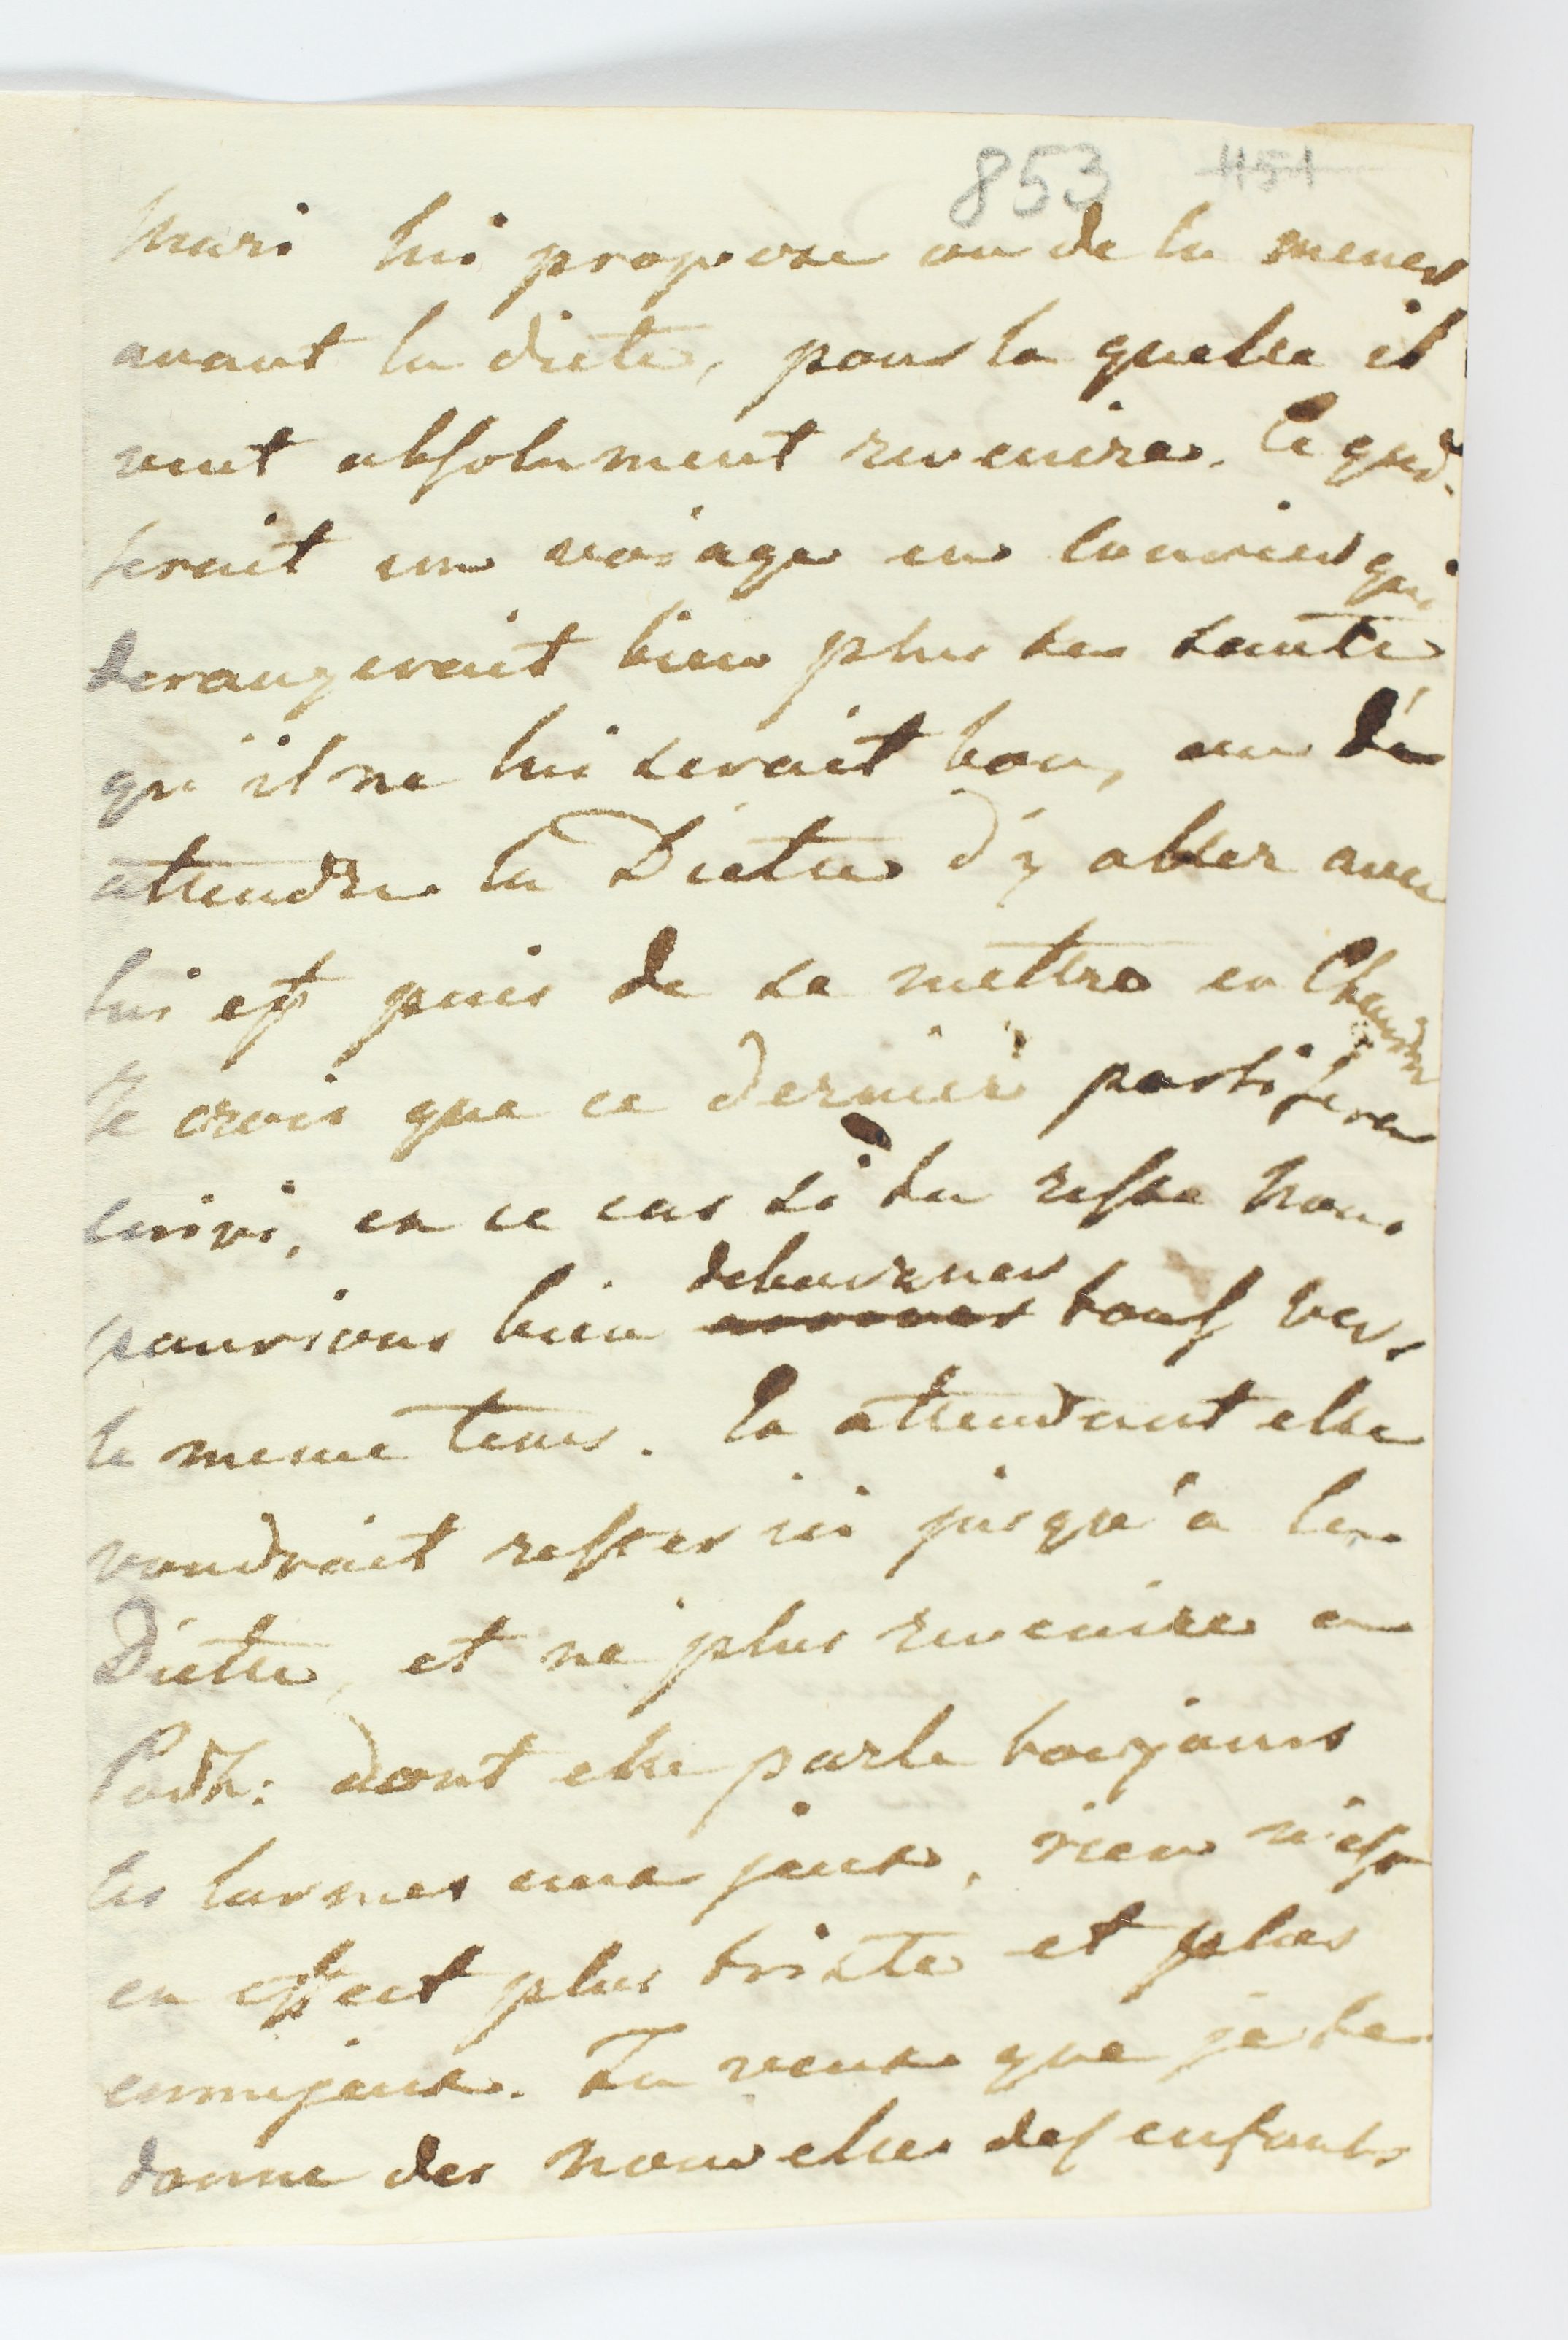 853 1151
mari lui propose ou de la mener
avant la diete, pour la quelle il
veut absolument revenire. Ce qui
serait un voiage en courier qui
derangerait bien plus sa santé
qu'il ne lui serait bon, ou de
attendre la Diette d'y aller avec
lui et puis de se mettre en chemin
Je crois que ce dernier parti sera
suivi, en ce cas si tu reste nous
pourions bien debourner touf vers
le meme tems. En attendant elle
voudrait rester ici jusqu'a la
Diette, et ne plus revenire en
Podh: dont elle parle toujours
les larmes aux jeux, rien n'est
en effect plus triste et plus
ennujeux. Tu veux que je te
donne des nouvelles des enfants